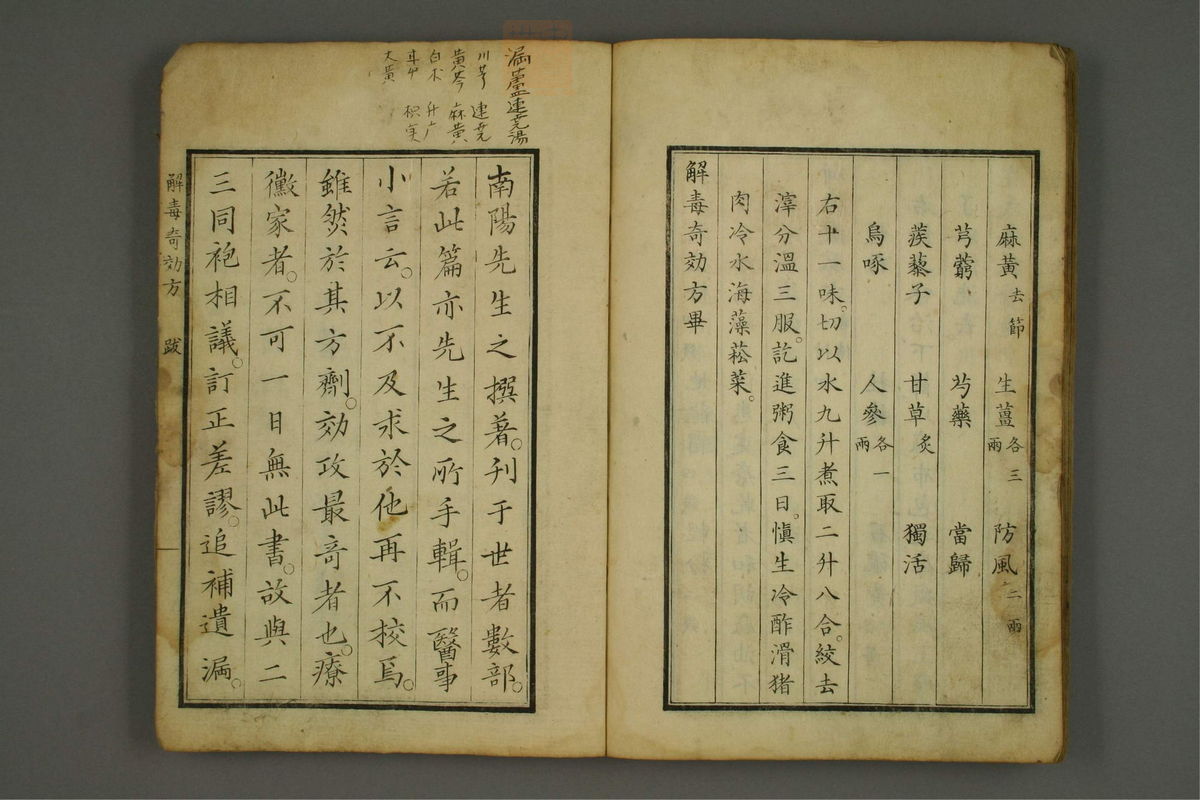 麻黄去節 生薑各三兩 防風二兩
芎藭 芍藥 當歸
蒺藜子 甘草炙 獨活
烏啄 人參各一兩
右十一味。切以水九升煮取二升八合。絞去
滓分溫三服。訖進粥食三日。愼生冷酢滑猪
肉冷水海藻菘菜。
解毒奇効方畢
漏蘆連堯湯
川芎 連堯
黄芩 麻黄
白朮 升广
甘艸 枳実
大黄
南陽先生之撰著。刊于世者數部。
若此篇亦先生之所手輯。而醫事
小言云。以不及求於他再不挍焉。
雖然於其方劑。効攻最竒者也。療
黴家者。不可一日無此書。故與二
三同袍相議。訂正差謬。追補遺漏。
解毒奇効方 跋